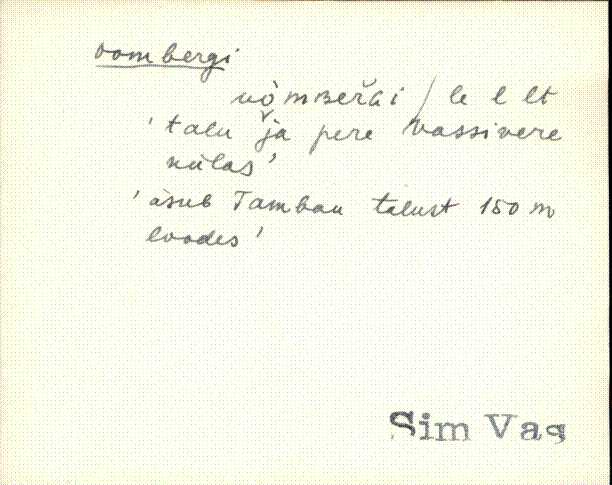 oombergi
uòmʙeřɢi / le l lt
'talu ja pere Vassivere
külas'
'asub Tambau talust 150 m
loodes'
Sim Vas